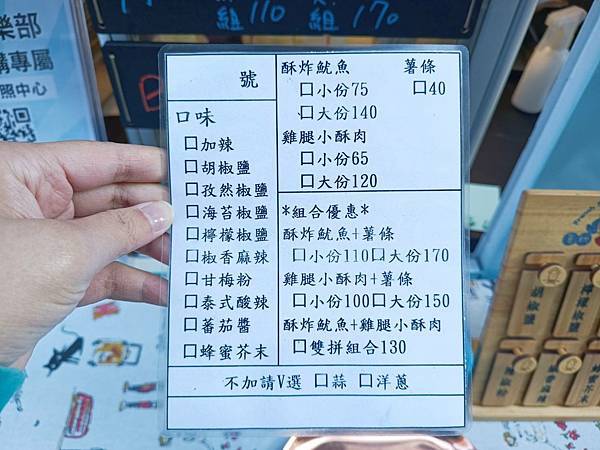 樂部
購專屬
照中心
組110 組170
號
口味
□加辣
□胡椒鹽
□孜然椒鹽
□海苔椒鹽
□檸檬椒鹽
□椒香麻辣
□甘梅粉
□泰式酸辣
□蕃茄醬
□蜂蜜芥末
酥炸魷魚 薯條
□小份75 □40
□大份140
雞腿小酥肉
□小份65
□大份120
*組合優惠*
酥炸魷魚+薯條
□小份110□大份170
雞腿小酥肉+薯條
□小份100□大份150
酥炸魷魚+雞腿小酥肉
□雙拼組合130
不加請V選 □蒜 □洋蔥
胡椒鹽
蜂蜜芥末